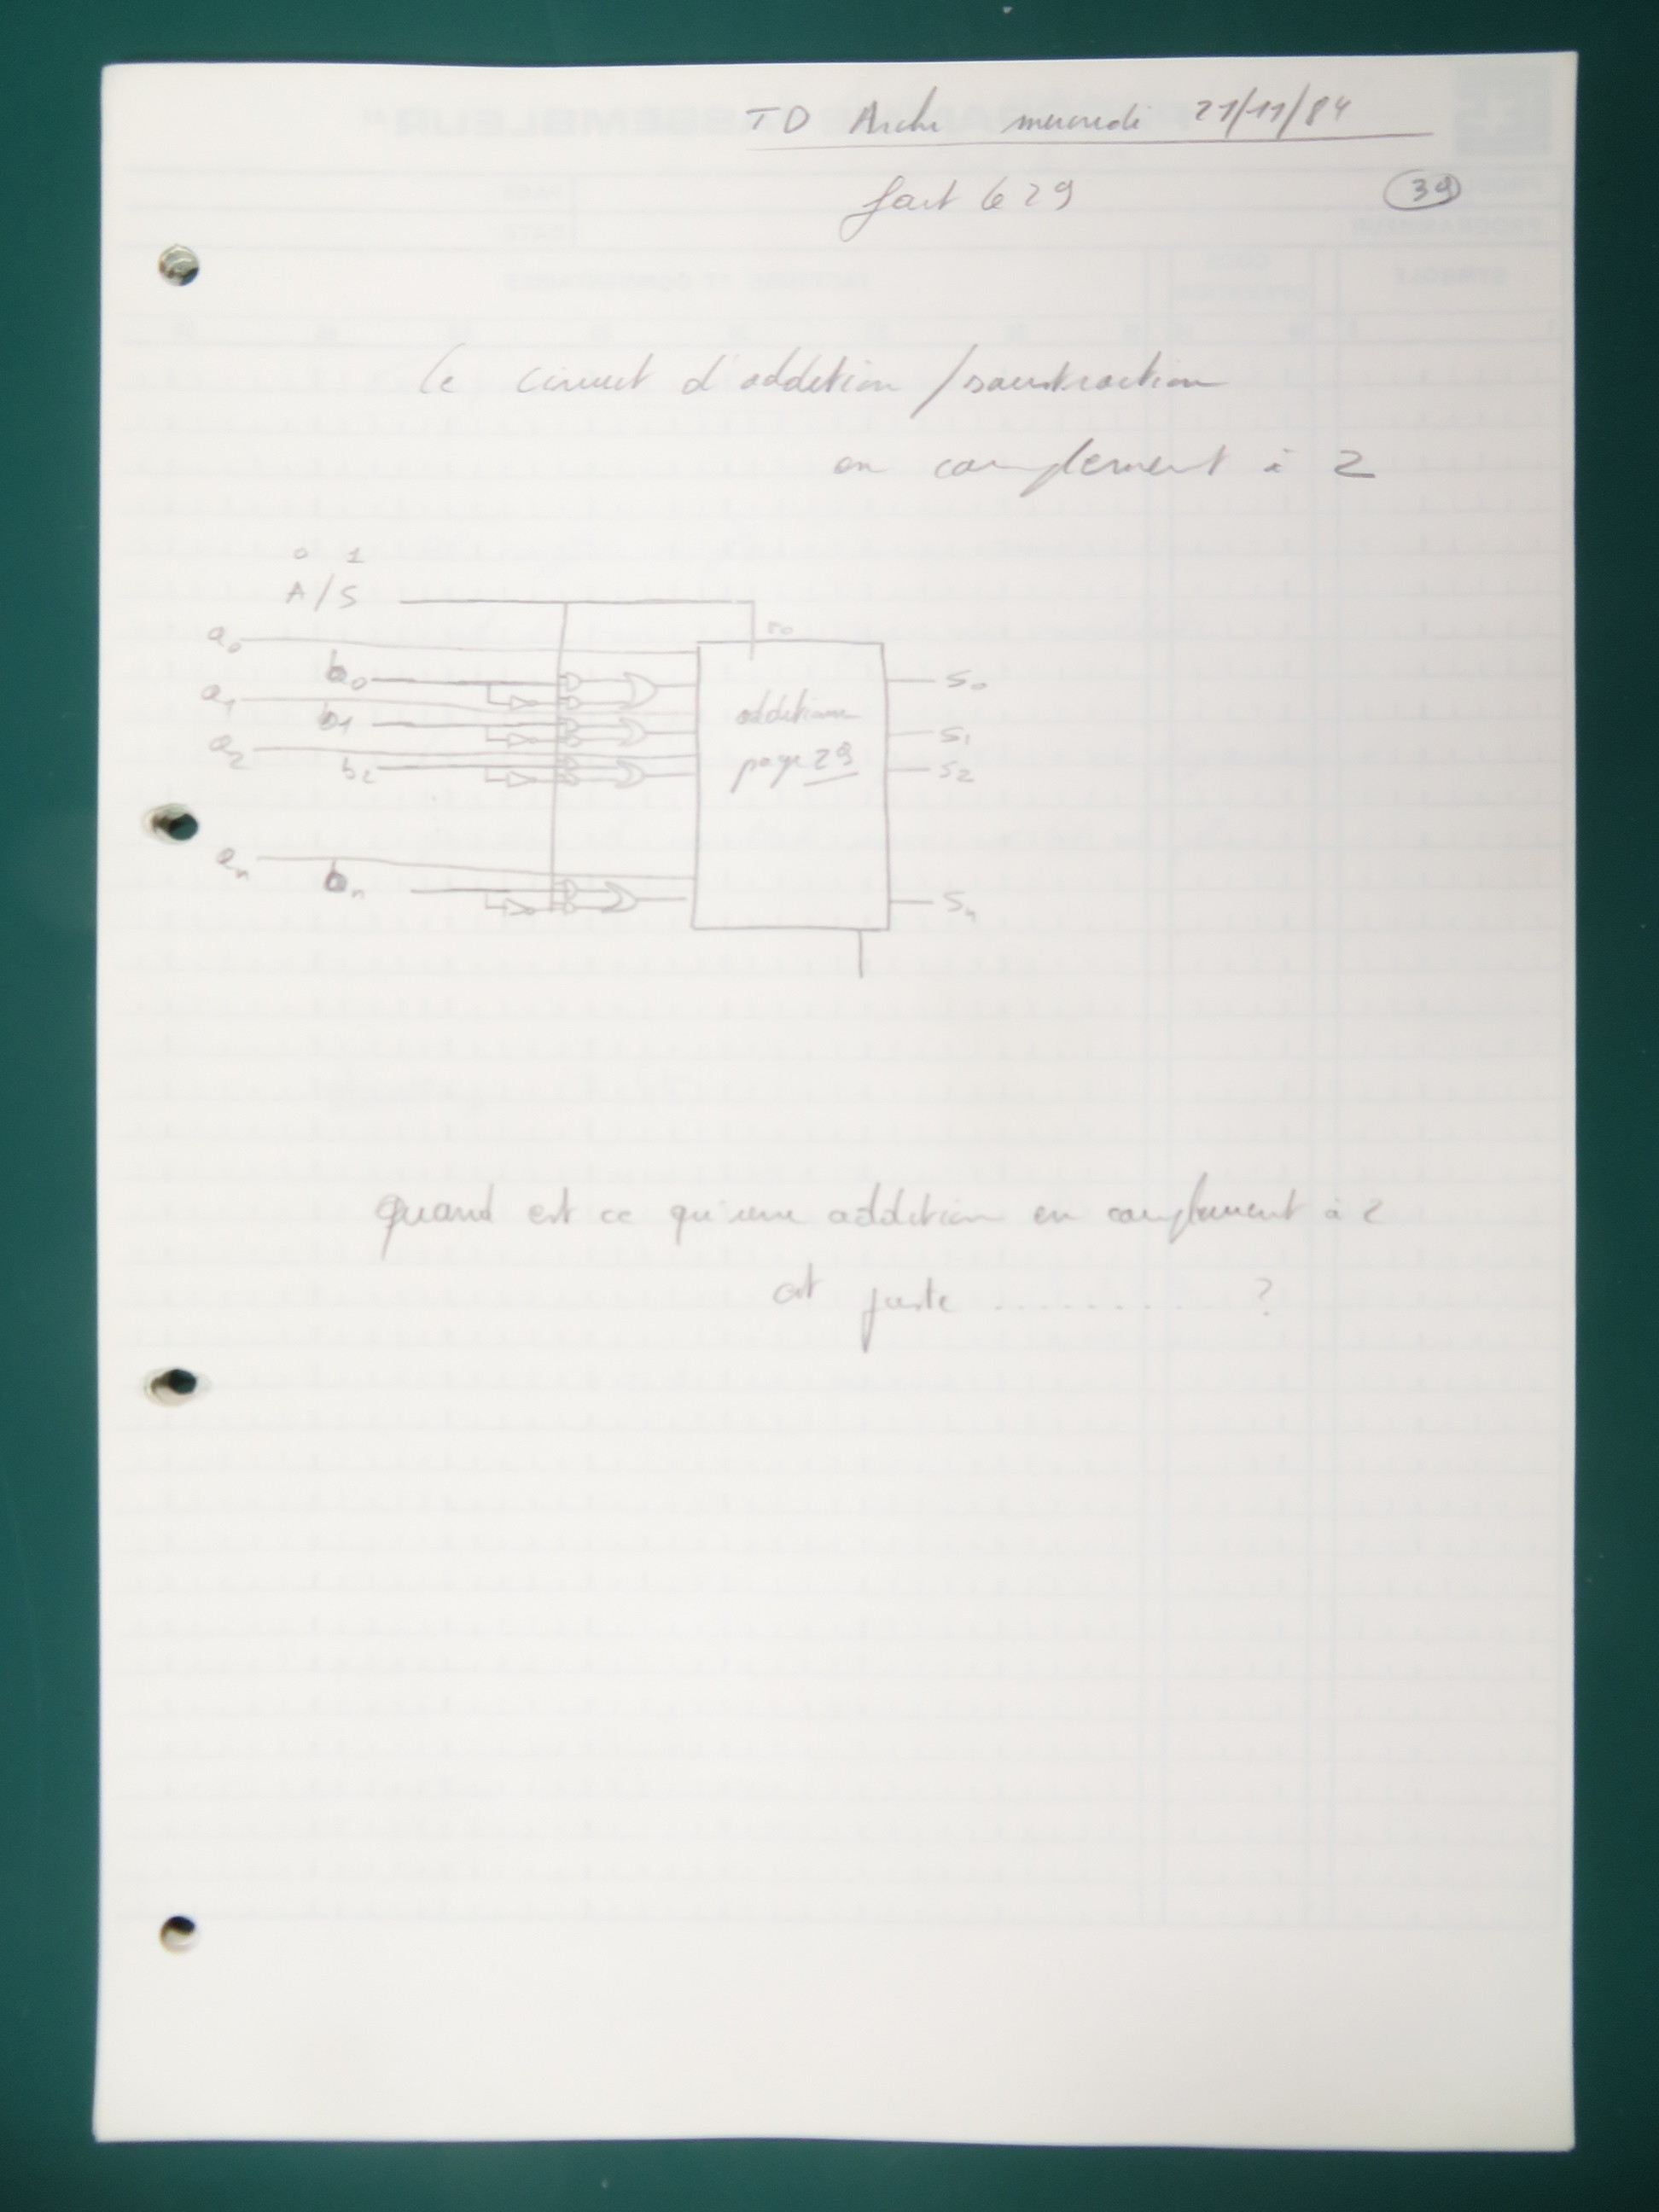 TD Archi mercredi 21/11/84
fait le 29
39
Le circuit d'addition / soustraction
en complement à 2
0 1
A/S
r0
a0
b0
S0
a1
b1
addition
S1
a2
b2
page 29
S2
an
bn
Sn
quand est ce qu'une addition en complement à 2
est juste ......... ?